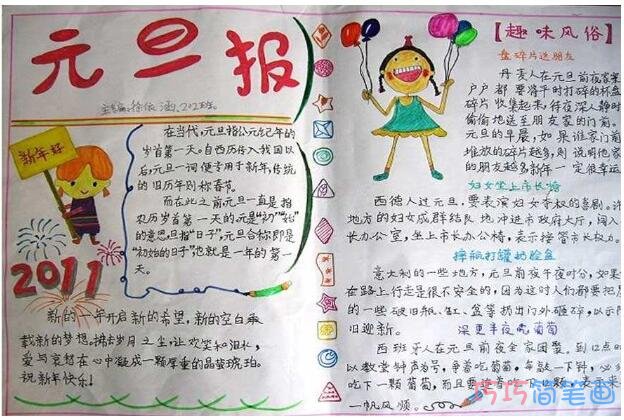 元旦报
主编:徐依涵,202班
新年好
2011
在当代,元旦指公元纪年的
岁首第一天。自西历传入我国以
后,元旦一词便专用于新年,传统
的旧历年则称春节。
而在此之前元旦一直是指
农历岁首第一天的元是"初""始"
的意思,旦指"日子",元旦合称即是
"初始的日子",也就是一年的第一
天。
新的一年开启新的希望,新的空白承
载新的梦想。拂去岁月之尘,让欢笑和泪水,
爱与哀愁在心中凝成一颗厚重的晶莹琥珀。
祝新年快乐!
【趣味风俗】
盘碎片送朋友
丹麦人在元旦前夜家家
户户都要将平时打碎的杯盘
碎片收集起来,待夜深人静时
偷偷地送至朋友家的门前。
元旦的早晨,如果谁家门前
堆放的碎片越多,则说明他家
的朋友越多新年一定很幸运
妇女坐上市长椅
西德人过元旦,要表演妇女夺权的喜剧。
地方的妇女成群结队地冲进市政府大厅,闯入
长办公室,坐上市长办公椅,表示接管市长权力。
摔瓶打罐扔脸盆
意大利的一些地方,元旦前夜午夜时分,如果
在路上行走是很不安全的,因为这时人们都要把
的一些破旧瓶、缸、盆等扔出门外砸碎,以示
旧迎新。
深更半夜吃葡萄
西班牙人在元旦前夜全家团聚。到12点
以教堂钟声为号,争着吃葡萄,每敲一下钟,必
吃下一颗葡萄,而且要
一帆风顺。
巧巧简笔画